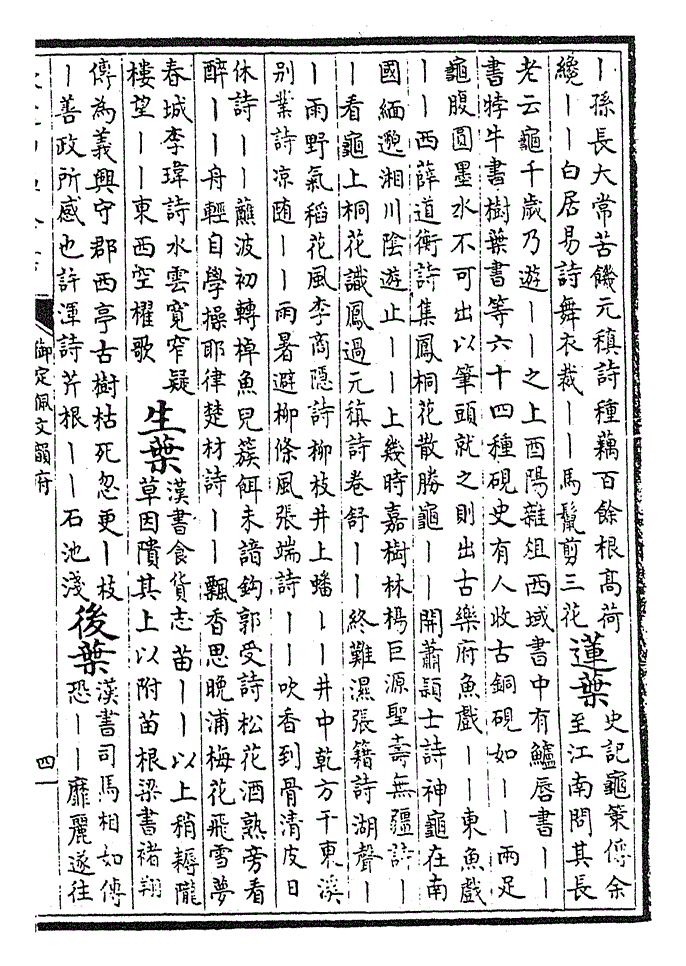 〡孫長大常苦饑元稹詩種藕百餘根髙荷
纔〡〡白居易詩舞衣裁〡〡馬鬛剪三花
蓮葉
史記龜策傳余
至江南問其長
老云龜千歲乃遊〡〡之上酉陽雜俎西域書中有鱸唇書〡〡
書牸牛書樹葉書等六十四種硯史有人收古銅硯如〡〡兩足
龜腹圓墨水不可出以筆頭就之則出古樂府魚戲〡〡東魚戲
〡〡西薛道衡詩集鳳桐花散勝龜〡〡開蕭頴士詩神龜在南
國緬邈湘川陰遊止〡〡上幾時嘉樹林楊巨源聖壽無疆詩〡
〡看龜上桐花識鳳過元稹詩卷舒〡〡終難濕張籍詩湖聲〡
〡雨野氣稻花風李商隠詩柳枝井上蟠〡〡井中乾方干東溪
别業詩凉随〡〡雨暑避柳條風張端詩〡〡吹香到骨清皮日
休詩〡〡蘸波初轉棹魚兒簇餌未諳鈎郭受詩松花酒熟旁看
醉〡〡舟輕自學操耶律楚材詩〡〡飄香思晚浦梅花飛雪夢
春城李瑋詩水雲寛窄疑
樓望〡〡東西空櫂歌
生葉
漢書食貨志苗〡〡以上稍耨隴
草因隤其上以附苗根梁書褚翔
傳為義興守郡西亭古樹枯死忽更〡枝
〡善政所感也許渾詩芹根〡〡石池淺
後葉
漢書司馬相如傳
恐〡〡靡麗遂往
御定佩文韻府
四